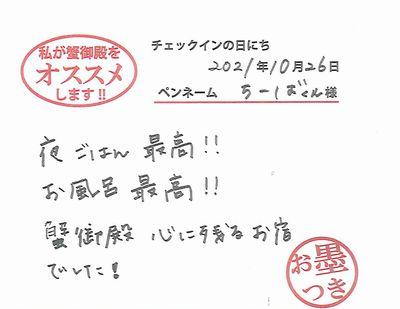 私が蟹御殿を
オススメ
します!!
チェックインの日にち
2021年10月26日
ペンネーム ちーばくん様
夜ごはん 最高!!
お風呂 最高!!
蟹御殿 心に残るお宿
でした!
お墨
つき